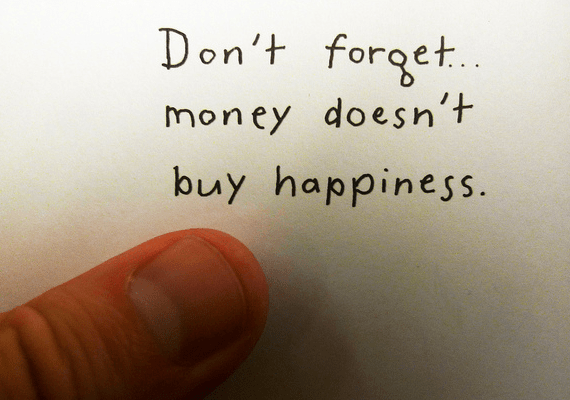 Don't forget...
money doesn't
buy happiness.